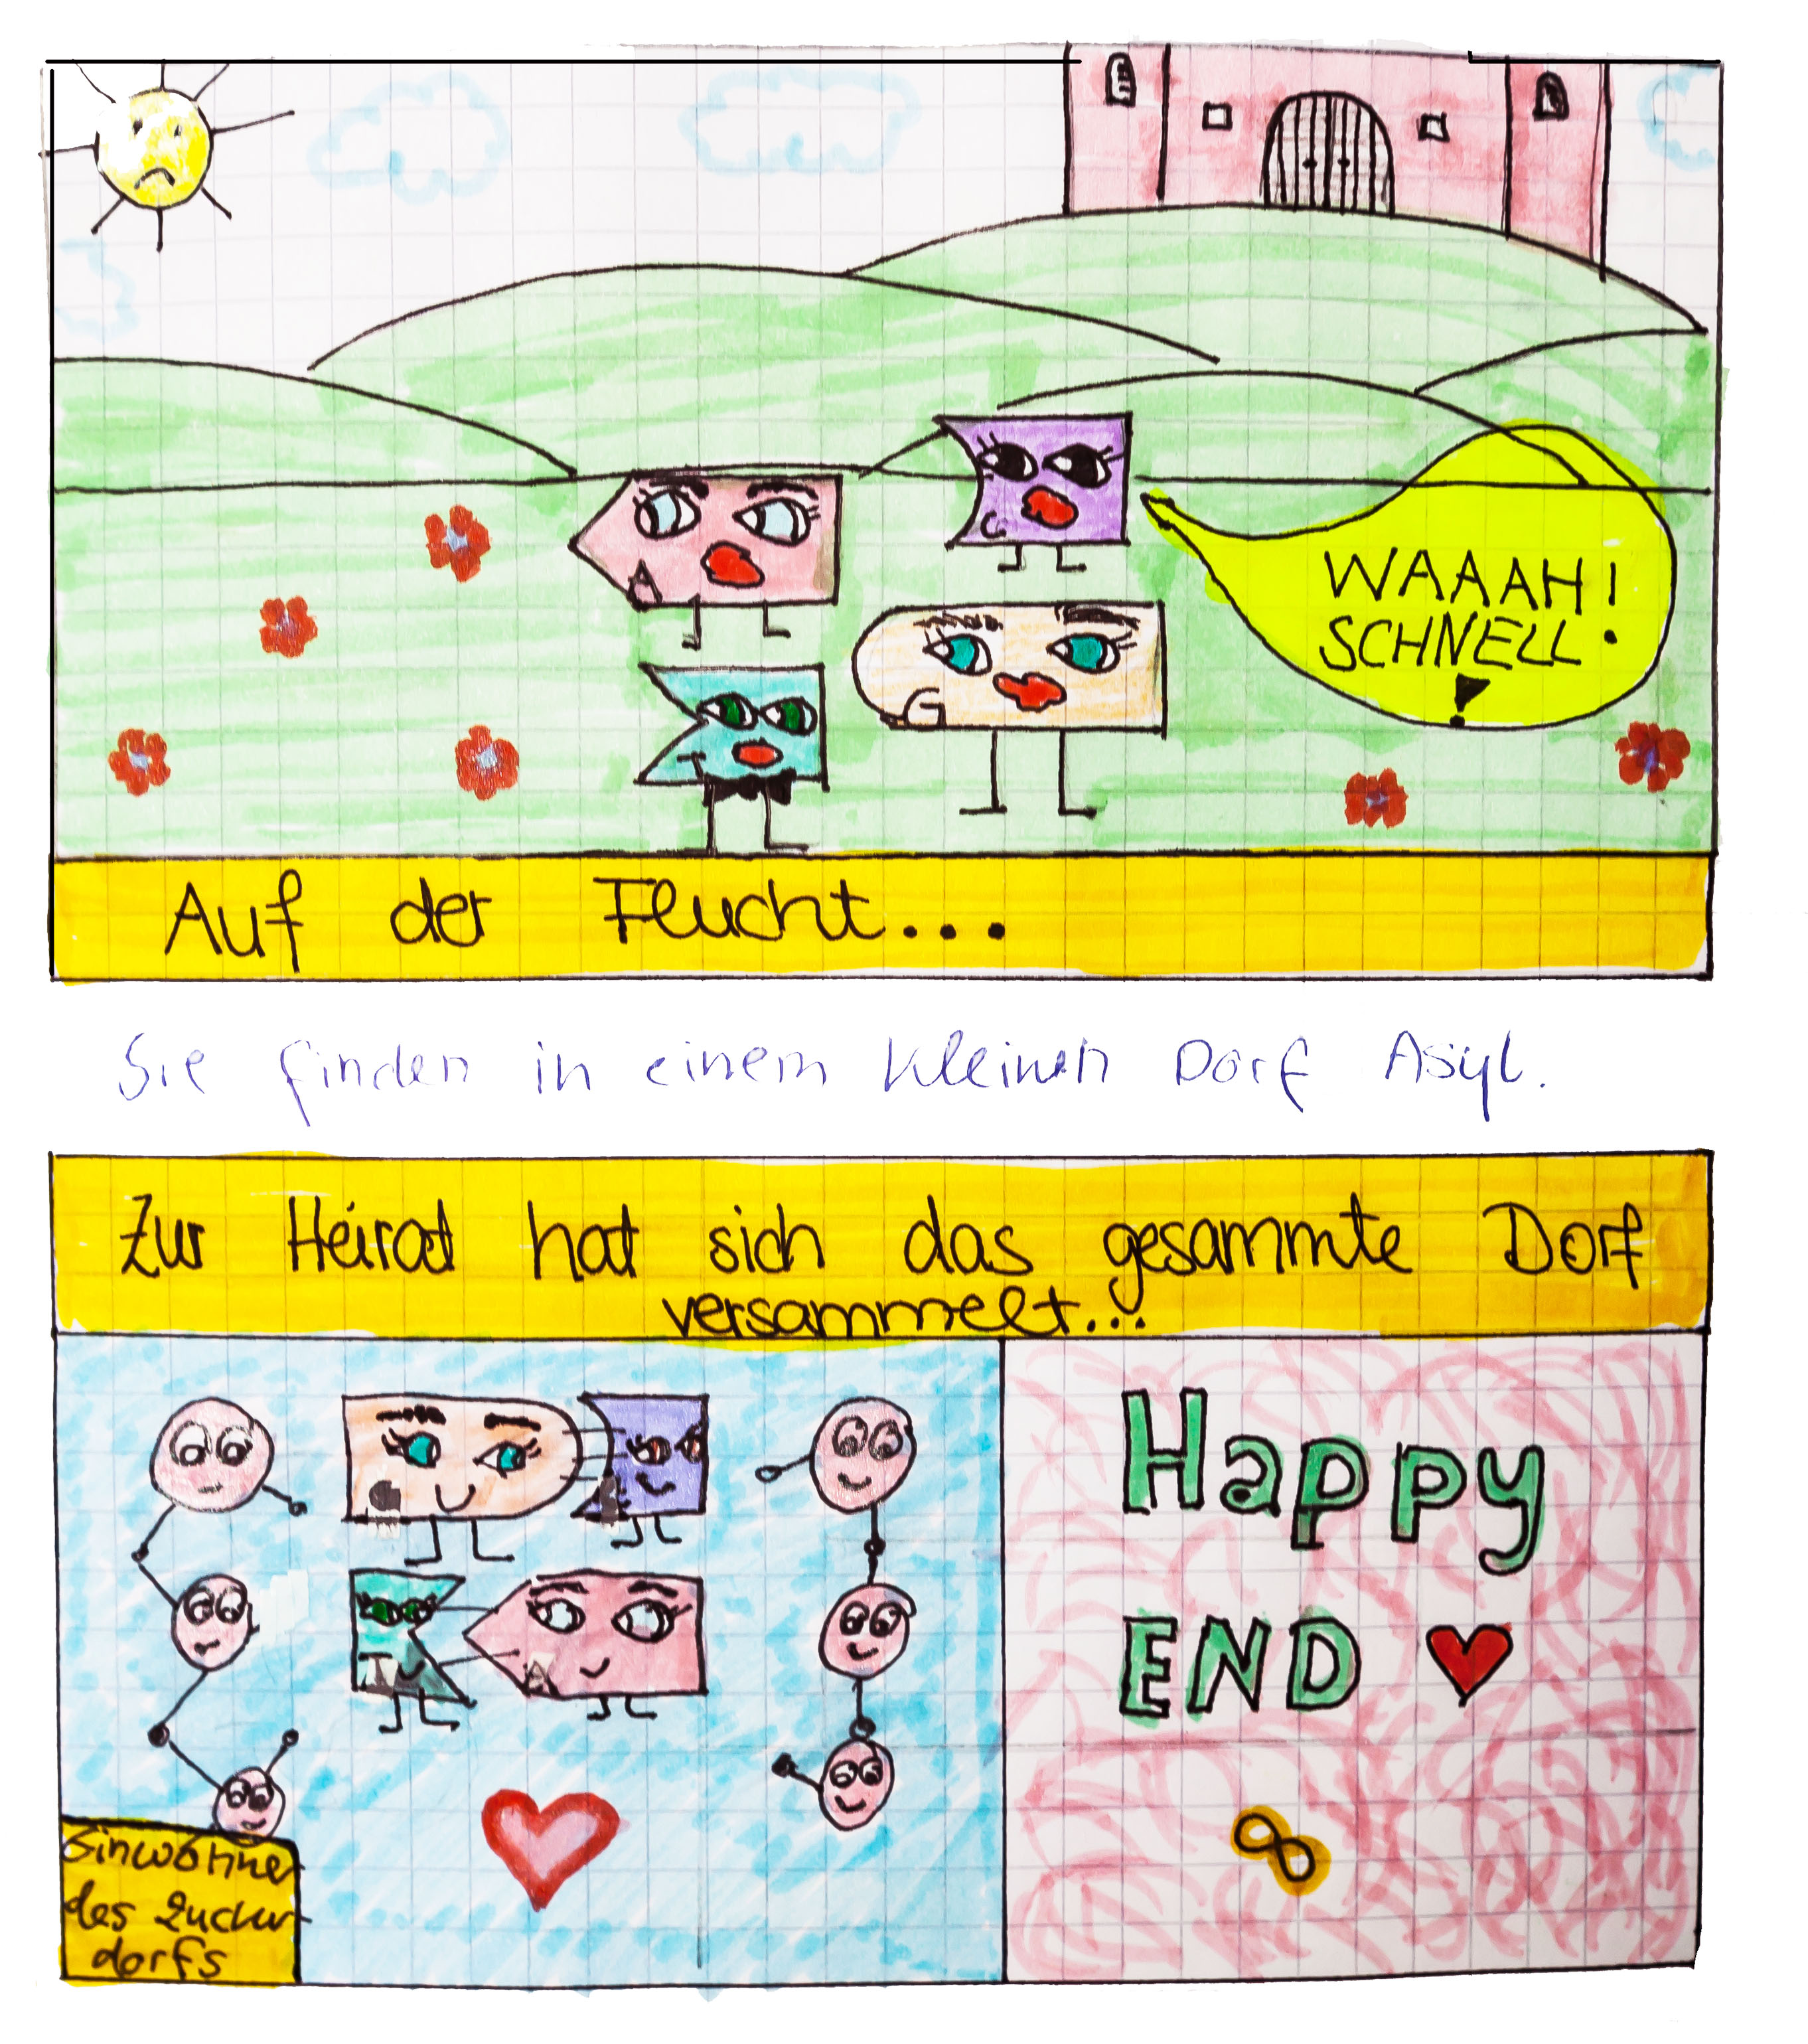 A
C
T
G
WAAAH!
SCHNELL!
Auf der Flucht...
Sie finden in einem kleinen Dorf Asyl.
Zur Heirat hat sich das gesammte Dorf
versammelt...
A
Happy
END
Einwohner
des Zucker-
dorfs